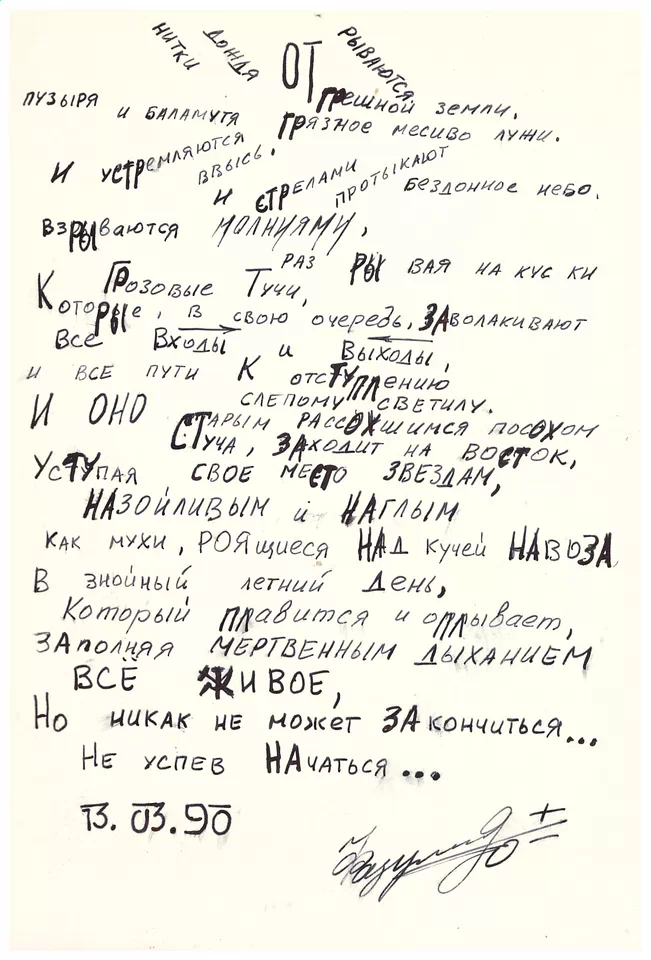 НИТКИ ДОЖДЯ ОТРЫВАЮТСЯ
ГРЕШНОЙ ЗЕМЛИ,
ПУЗЫРЯ И БАЛАМУТЯ ГРЯЗНОЕ МЕСИВО ЛУЖИ.
И УСТРЕМЛЯЮТСЯ ВВЫСЬ.
И СТРЕЛАМИ ПРОТЫКАЮТ БЕЗДОННОЕ НЕБО.
ВЗРЫВАЮТСЯ МОЛНИЯМИ,
РАЗ РЫ ВАЯ НА КУС КИ
ГРОЗОВЫЕ ТУЧИ,
КОТОРЫЕ, В СВОЮ ОЧЕРЕДЬ, ЗАВОЛАКИВАЮТ
ВСЕ ВХОДЫ И ВЫХОДЫ,
И ВСЕ ПУТИ К ОТСТУПЛЕНИЮ
СЛЕПОМУ СВЕТИЛУ.
И ОНО СТАРЫМ РАССОХШИМСЯ ПОСОХОМ
СТУЧА, ЗАХОДИТ НА ВОСТОК,
УСТУПАЯ СВОЕ МЕСТО ЗВЕЗДАМ,
НАЗОЙЛИВЫМ И НАГЛЫМ
КАК МУХИ, РОЯЩИЕСЯ НАД КУЧЕЙ НАВОЗА
В ЗНОЙНЫЙ ЛЕТНИЙ ДЕНЬ,
КОТОРЫЙ ПЛАВИТСЯ И ОПЛЫВАЕТ,
ЗАПОЛНЯЯ МЕРТВЕННЫМ ДЫХАНИЕМ
ВСЁ ЖИВОЕ,
НО НИКАК НЕ МОЖЕТ ЗАКОНЧИТЬСЯ...
НЕ УСПЕВ НАЧАТЬСЯ...
13.03.90